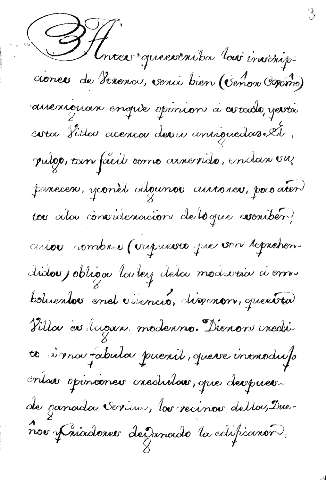 3
Antes que escriba las inscrip-
ciones de Utrera, será bien (Señor
averiguar en que opinion á estado, y está
esta Villa acerca de su antiguedad. El
vulgo, tan fácil como atrevido, en dar su
parecer, y con él algunos autores, poco aten
tos a la consideracion de lo que escriben,
cuios nombres (supuesto que son reprehen-
didos) obliga la ley de la modestia á em-
bolverlos en el silencio, dixeron, que esta
Villa és lugar moderno. Dieron credi-
to á una fabula pueril, que se introdujo
en las opiniones credulas, que despues
de ganada Sevilla, los vecinos della, Due-
ños y Criadores de ganado la edificaron.